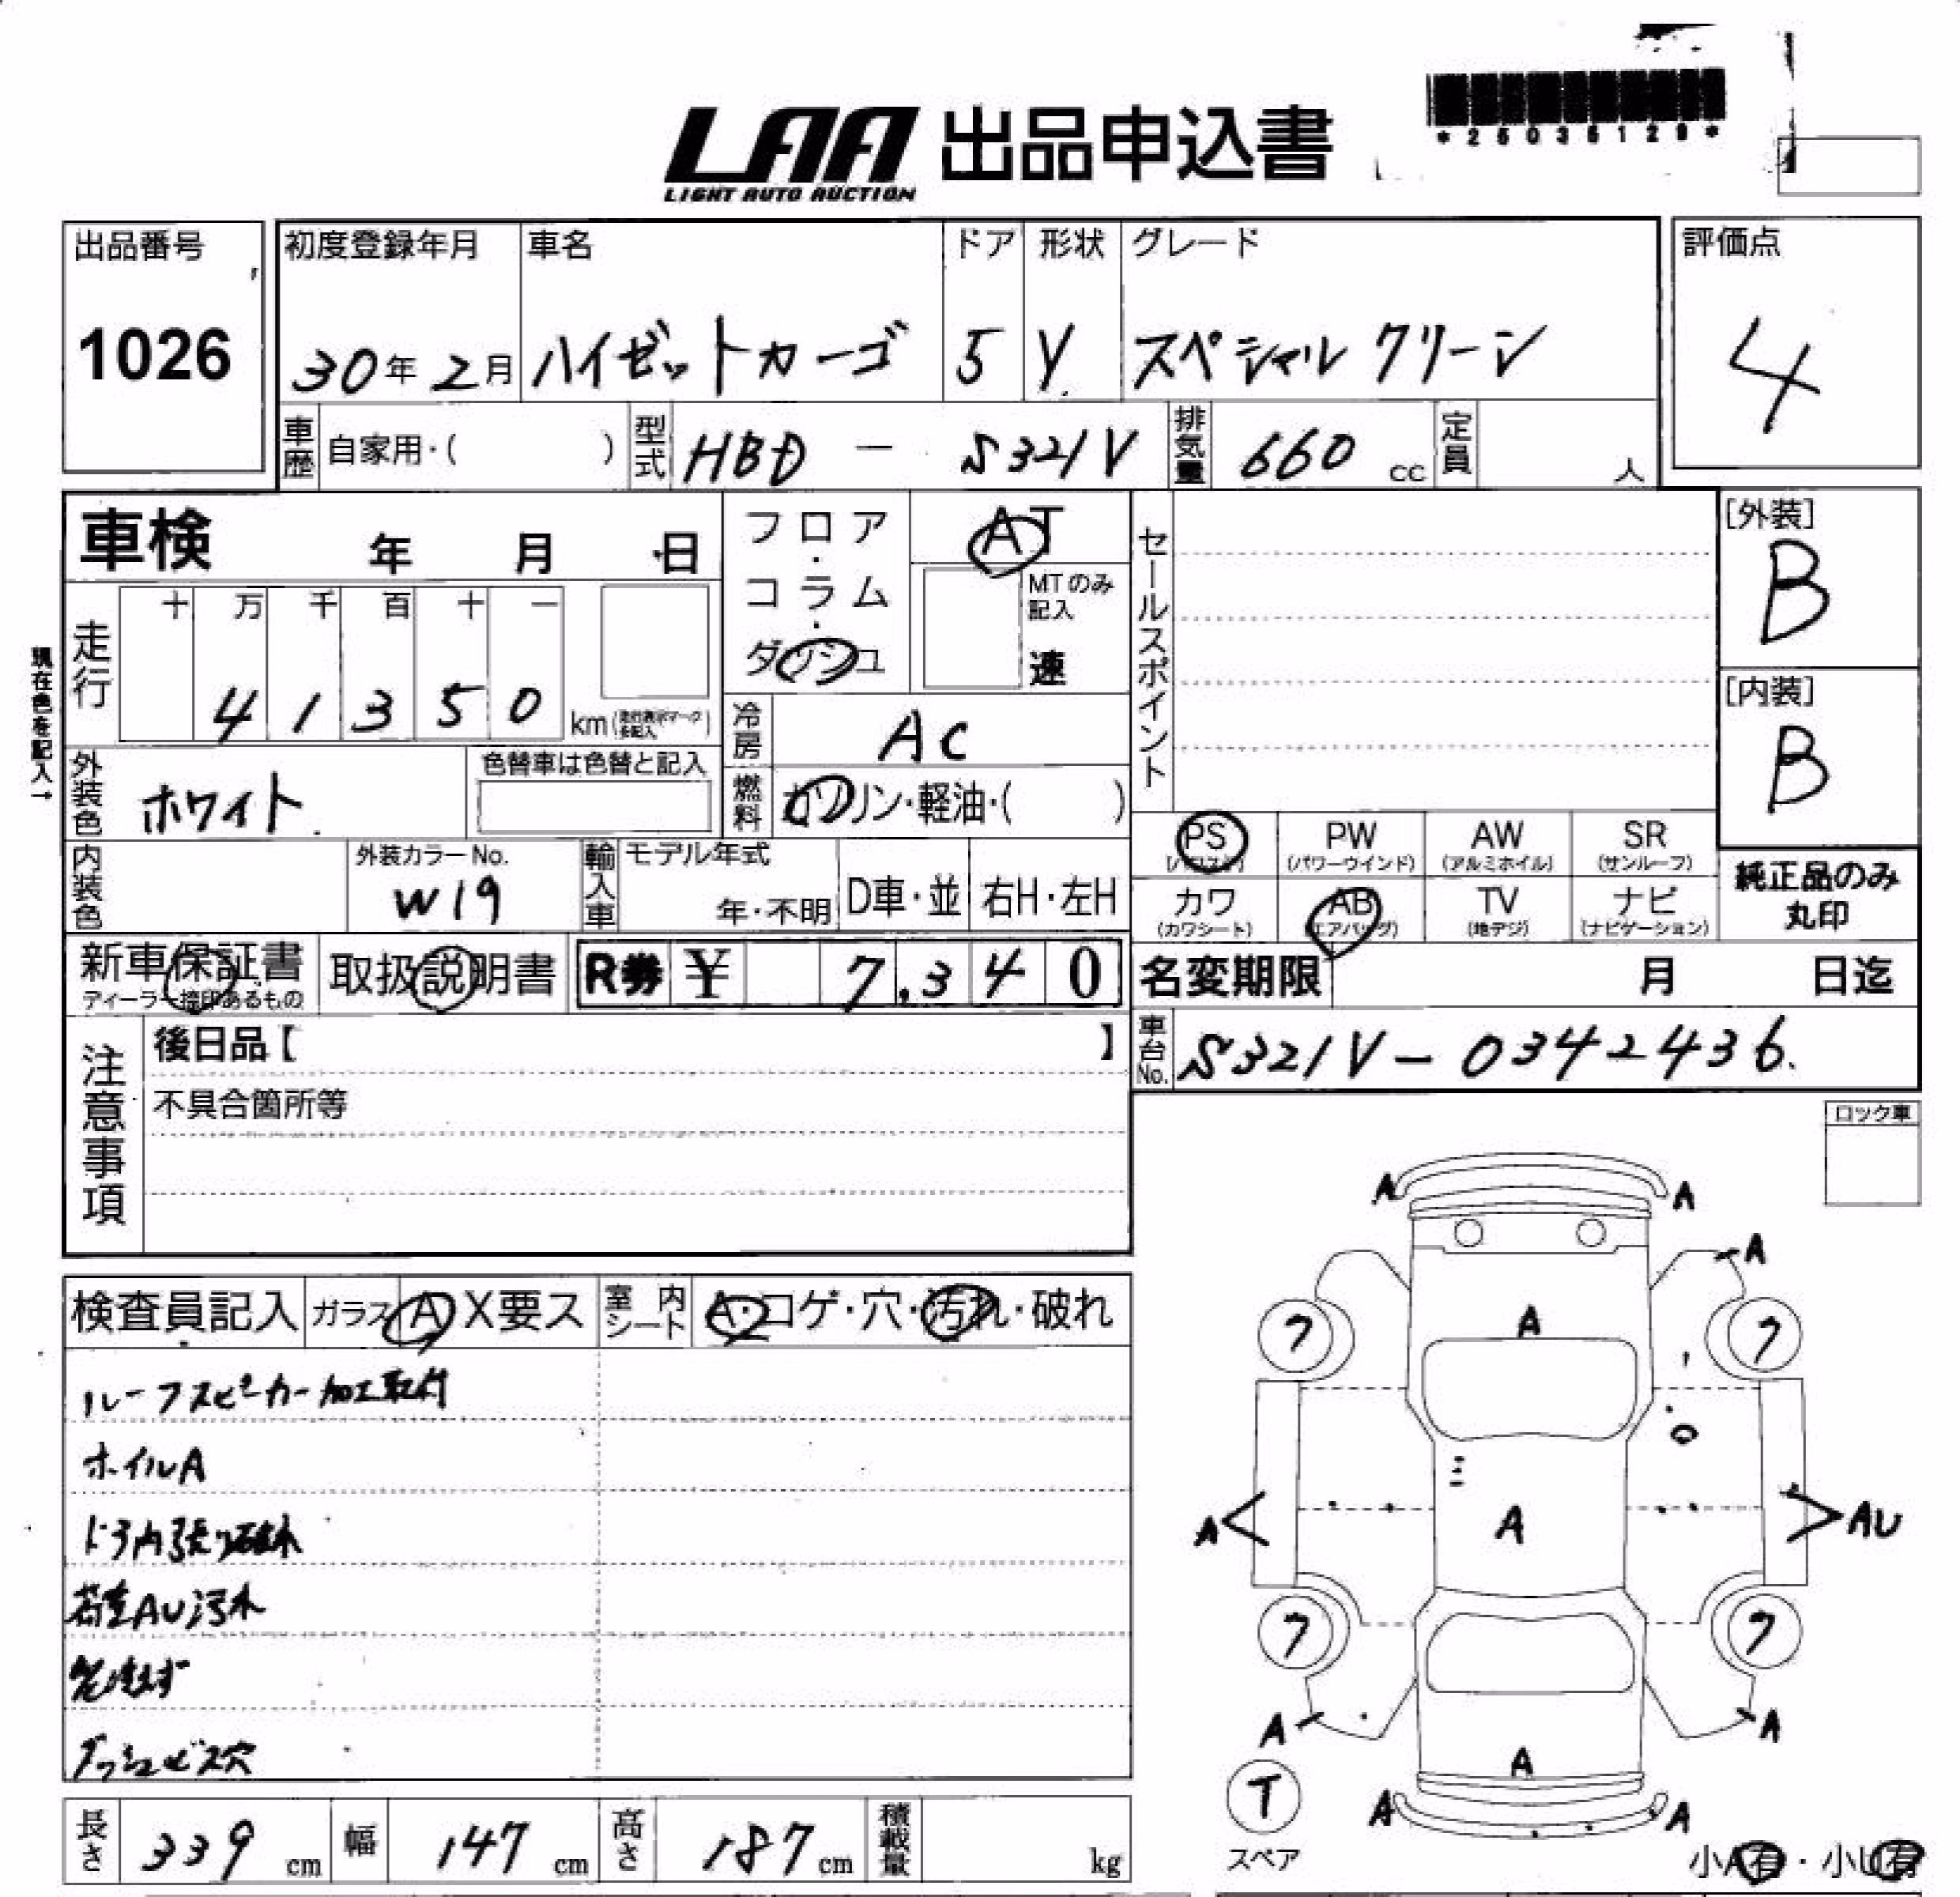 LAA 出品申込書
LIGHT AUTO AUCTION
*25036128*
出品番号
1026
初度登録年月
30年2月
車名
ハイゼットカーゴ
ドア
5
形状
V
グレード
スペシャル クリーン
評価点
4
車歴 自家用・( )
型式 HBD - S321V
排気量 660 cc
定員 人
車検 年 月 日
フロア・コラム・ダッシュ
AT
MTのみ記入
速
セールスポイント
[外装]
B
[内装]
B
現在色を記入→
走行
十 万 千 百 十 一
4 1 3 5 0 km
冷房 AC
外装色 ホワイト
色替車は色替と記入
燃料 ガソリン・軽油・( )
内装色
外装カラーNo.
W19
輸入車 モデル年式
年・不明 D車・並 右H・左H
PS PW (パワーウインド) AW (アルミホイル) SR (サンルーフ)
カワ (カワシート) AB (エアバッグ) TV (地デジ) ナビ (ナビゲーション)
純正品のみ
丸印
新車保証書
ディーラー捺印あるもの
取扱説明書
R券 ¥ 7,340
名変期限 月 日迄
車台No. S321V-0342436
注意事項
後日品【 】
不具合箇所等
ロック車
検査員記入 ガラス A X要ス 室内シート A・コゲ・穴・汚れ・破れ
ルーフスピーカー加工取付
ホイルA
ドア内張り破れ
荷室AU汚れ
ダッシュビス穴
A A
A
A
7 7
A
A AU
7 7
A A
A
T
スペア
A A
小A有・小U有
長さ 339 cm 幅 147 cm 高さ 187 cm 積載量 kg